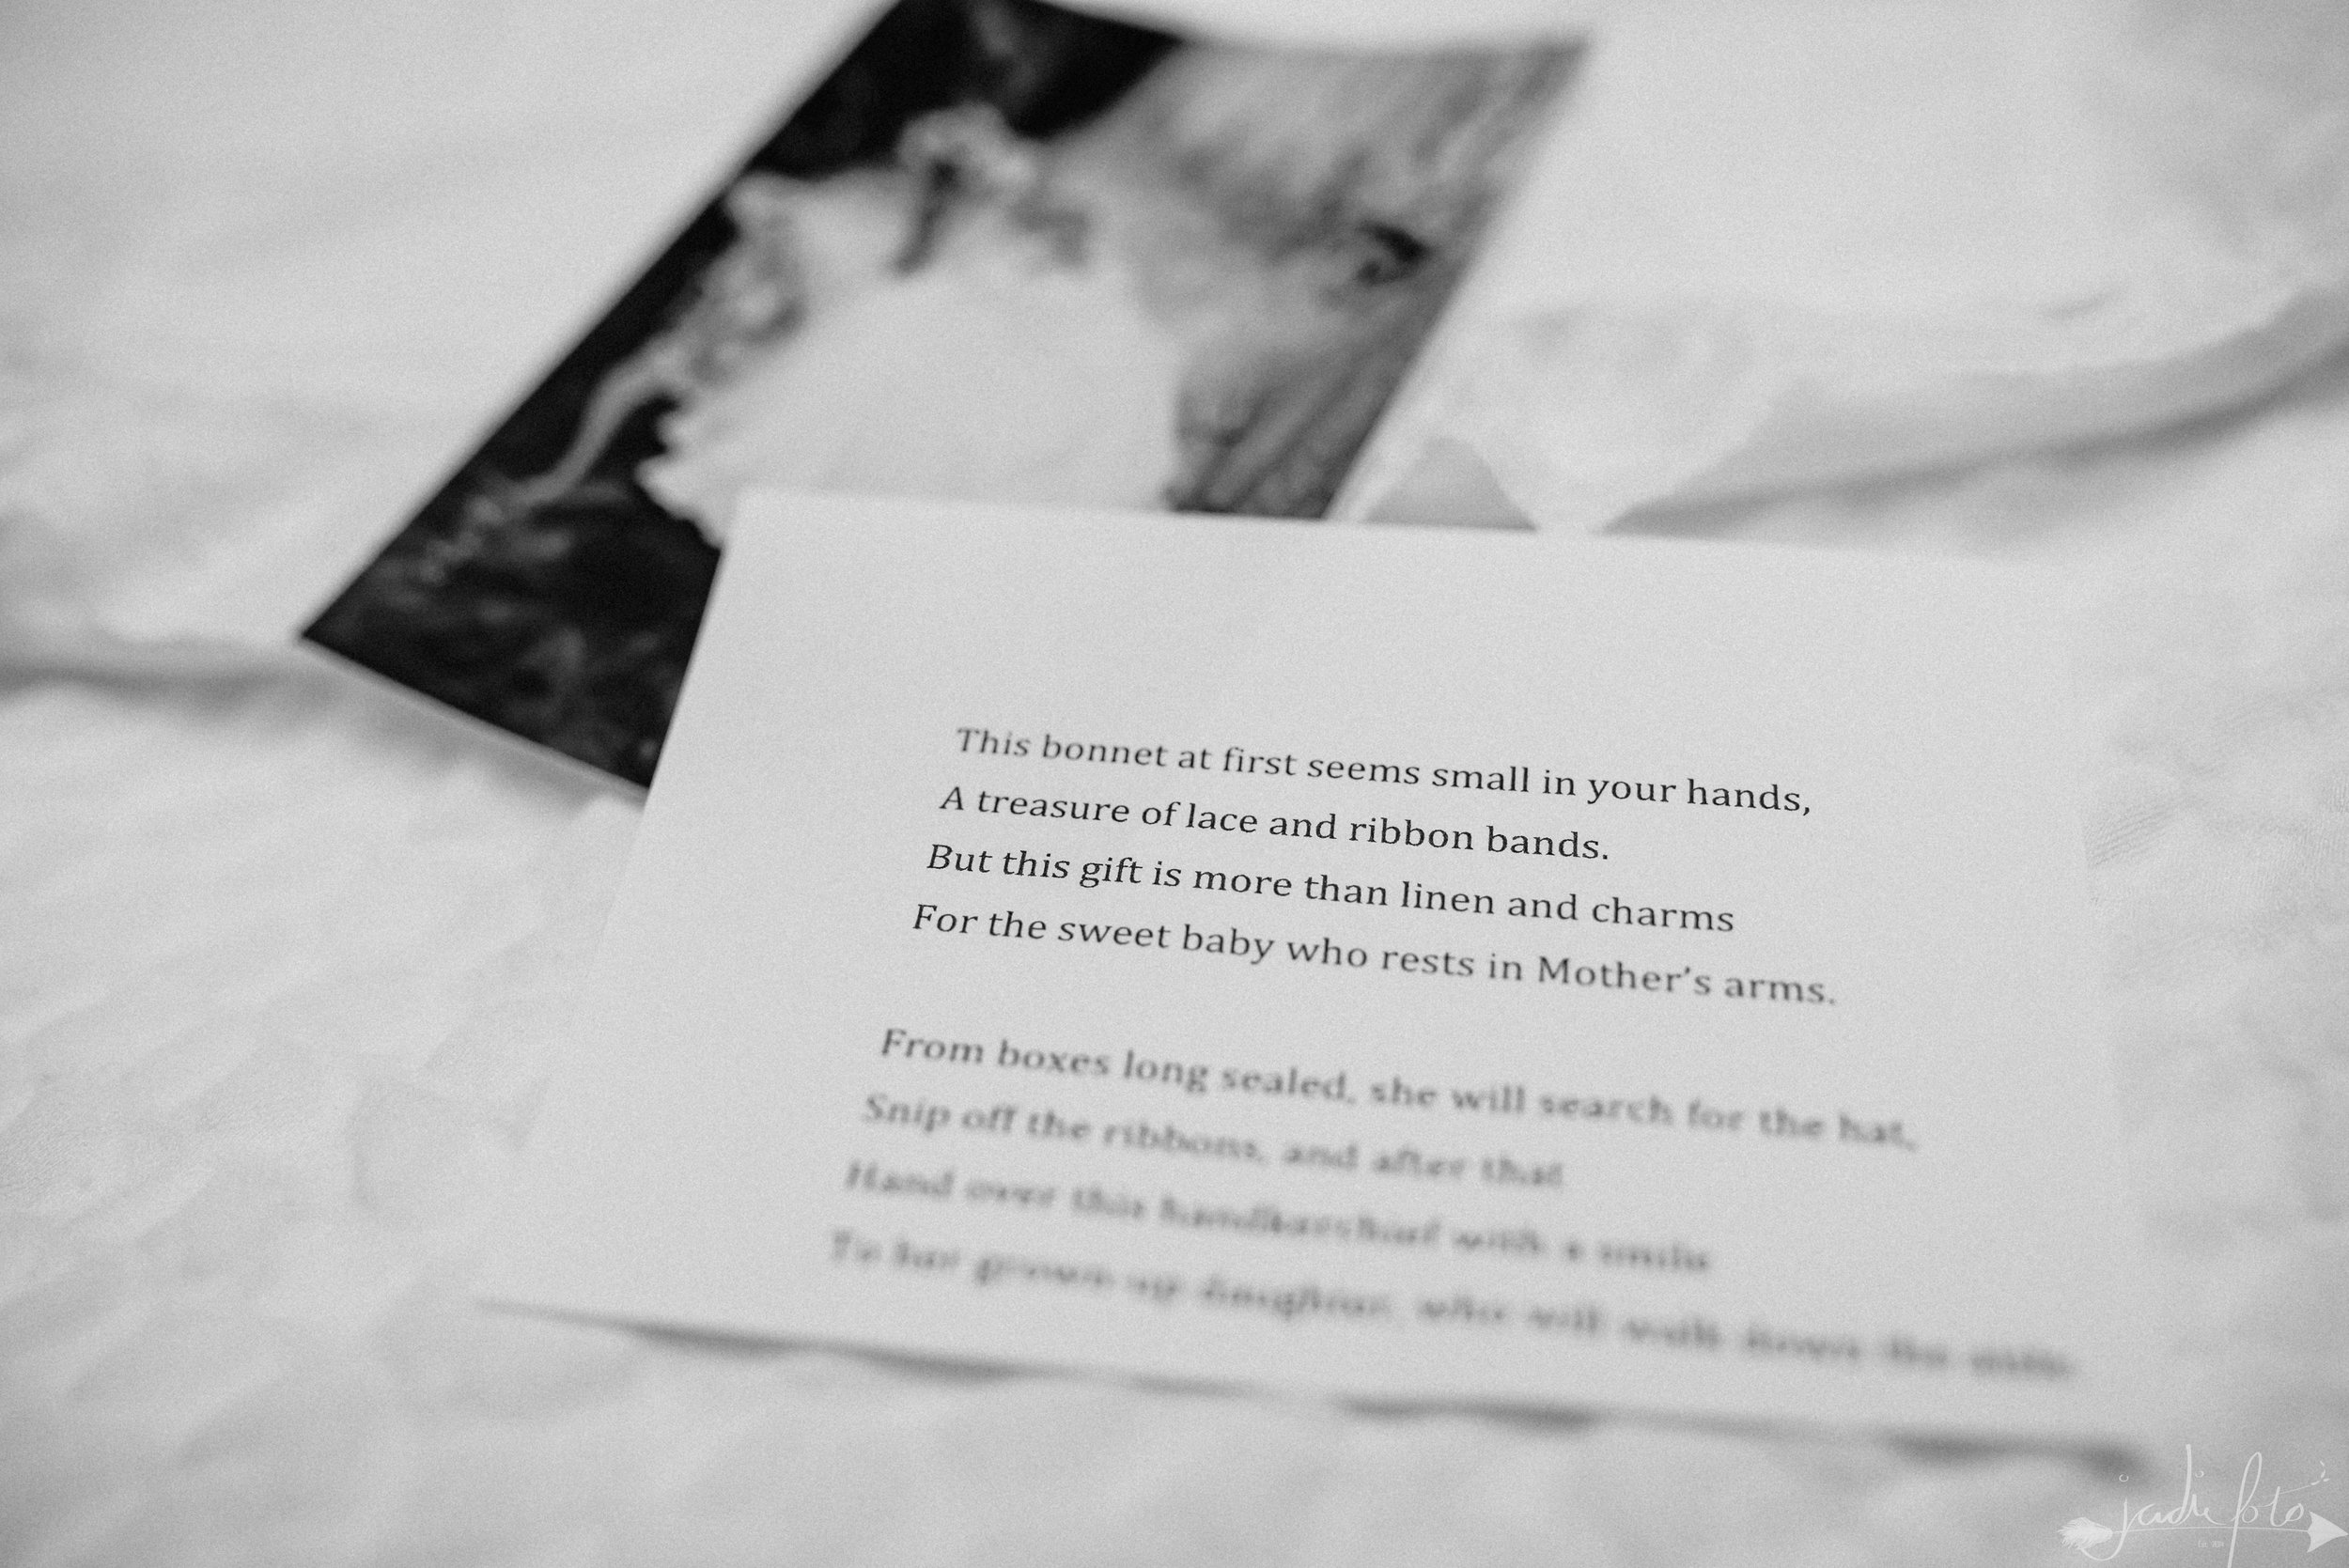 This bonnet at first seems small in your hands,
A treasure of lace and ribbon bands.
But this gift is more than linen and charms
For the sweet baby who rests in Mother’s arms.
From boxes long sealed, she will search for the hat,
Snip off the ribbons, and after that
Hand over this handkerchief with a smile
To her grown-up daughter, who will walk down the aisle.
jadie foto